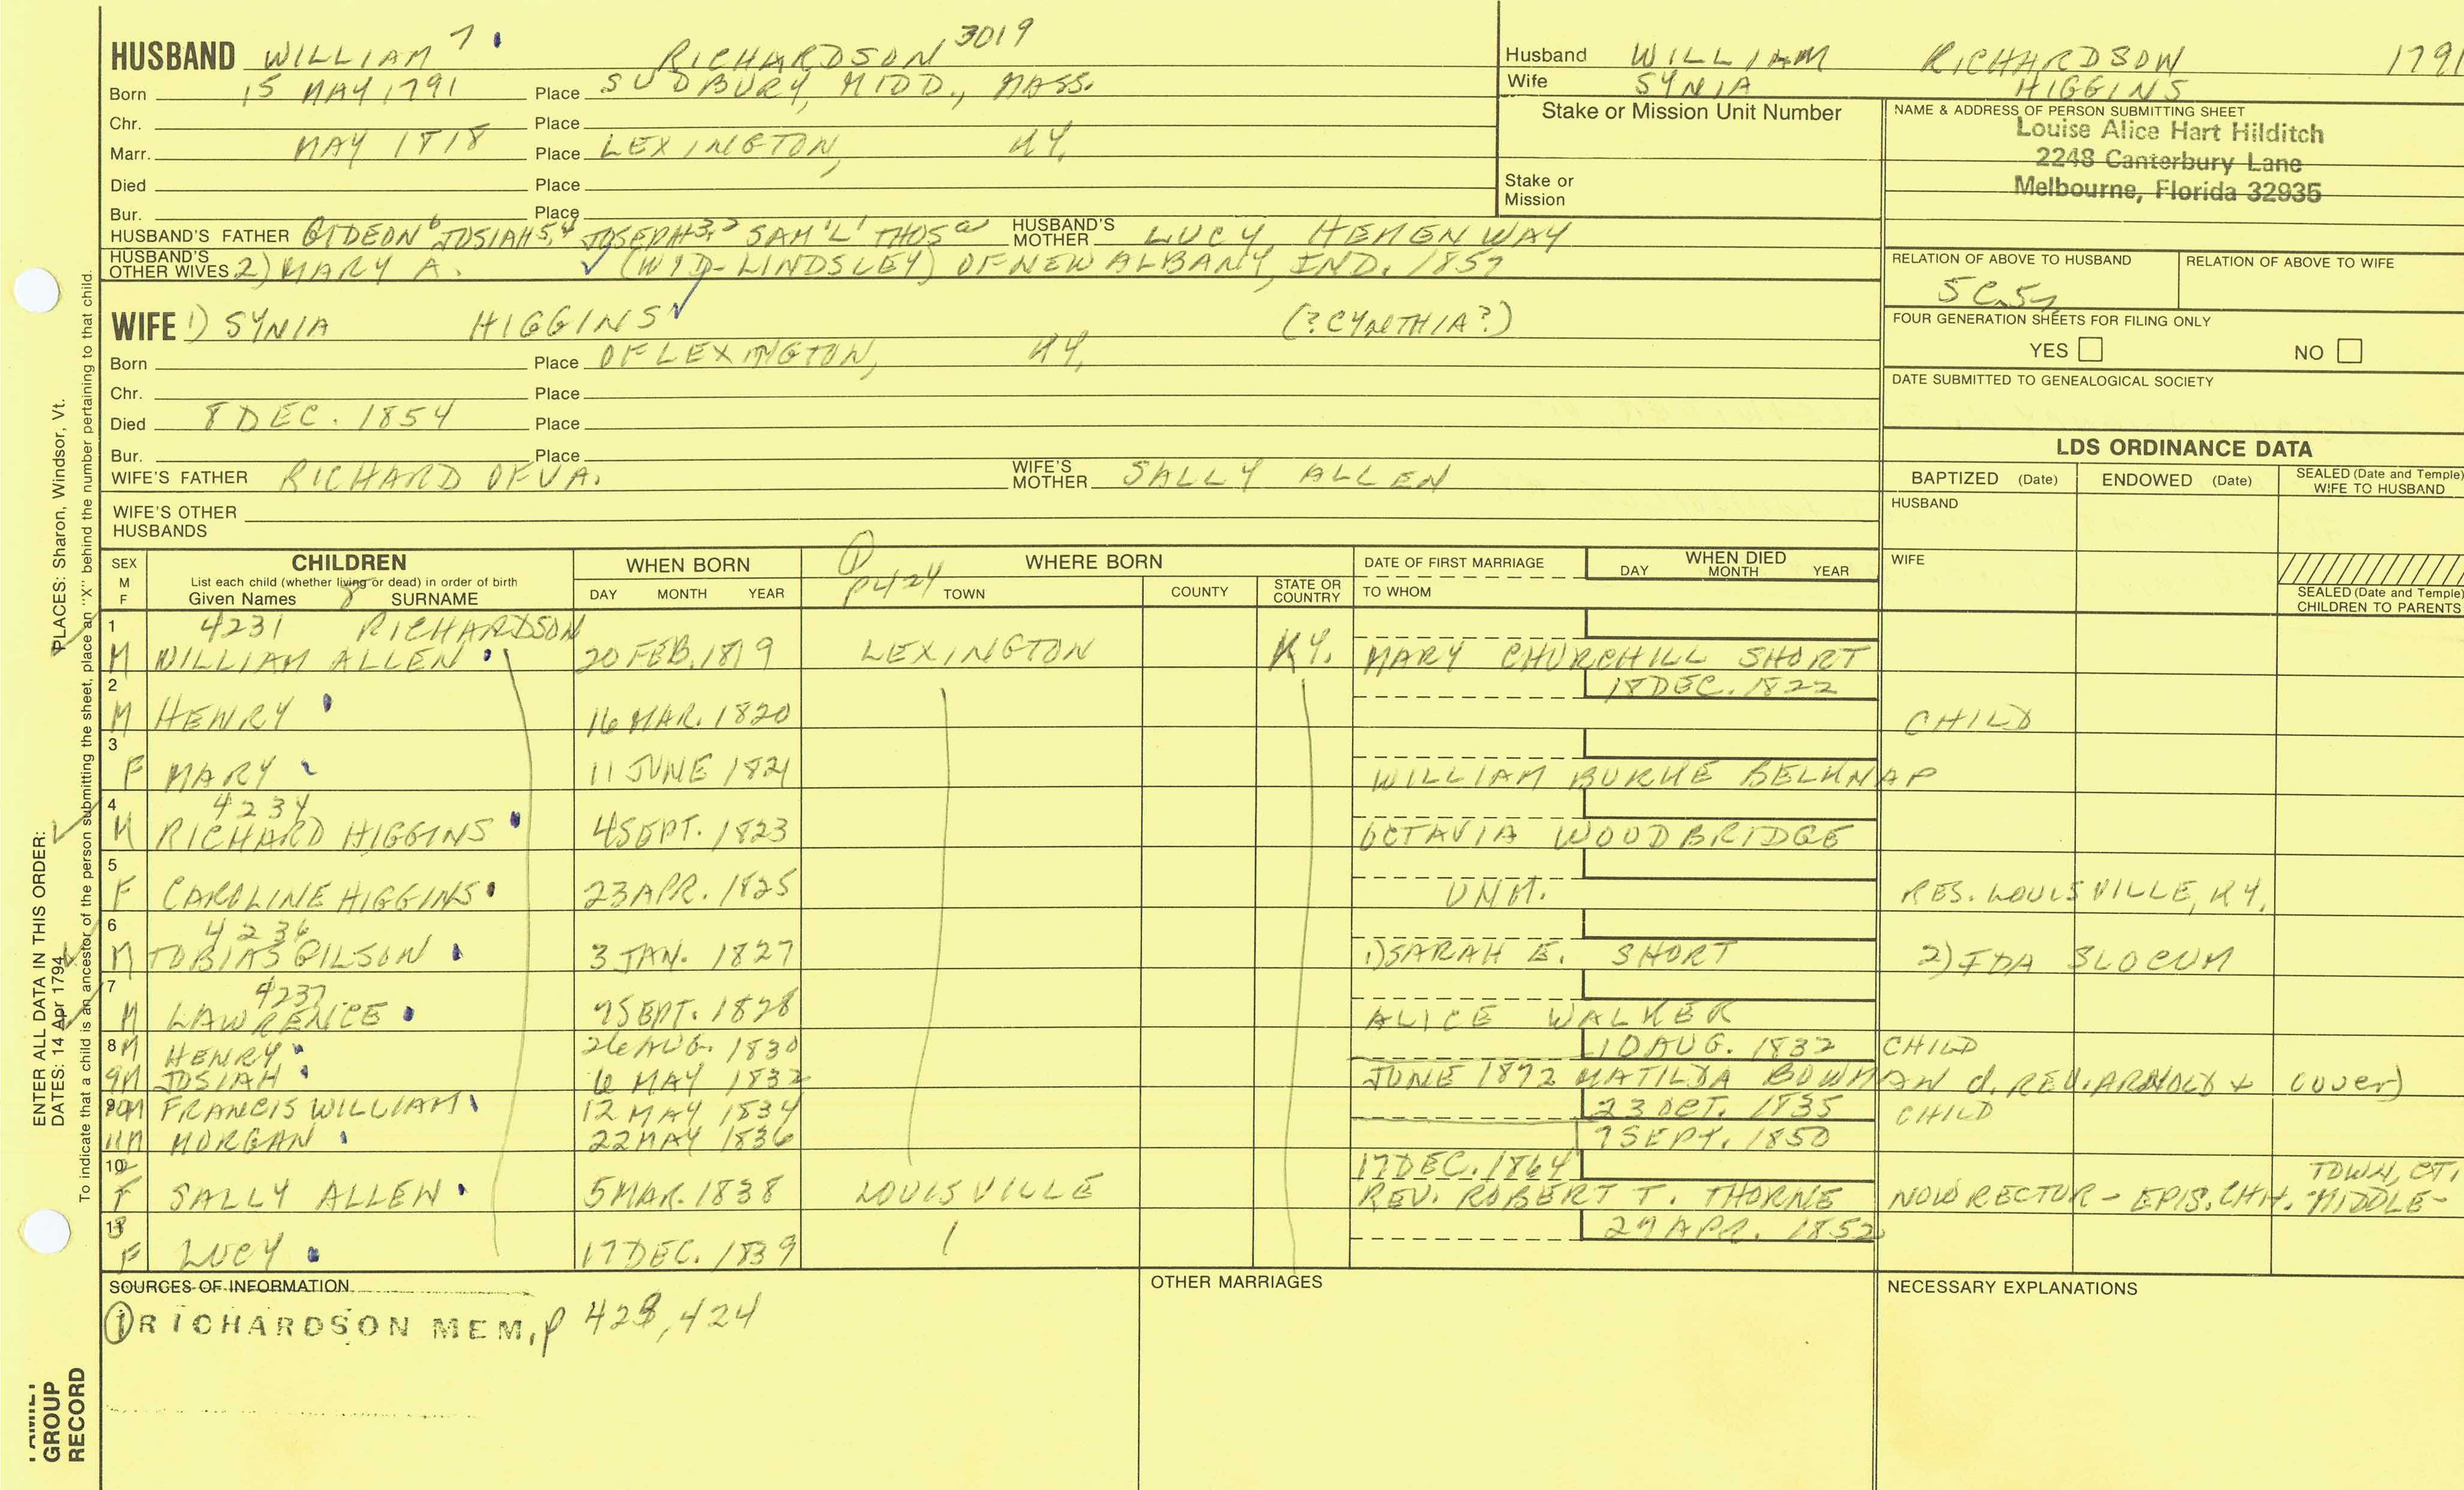 HUSBAND WILLIAM 7 RICHARDSON 3019
Born 15 MAY 1791 Place SUDBURY, MIDD., MASS.
Chr. Place
Marr. MAY 1818 Place LEXINGTON, KY.
Died Place
Bur. Place
HUSBAND'S FATHER GIDEON 6 JOSIAH 5,4 JOSEPH 3,2 SAM'L 1 THOS a HUSBAND'S MOTHER LUCY HEMENWAY
HUSBAND'S OTHER WIVES 2) MARY A. (WID-LINDSLEY) OF NEW ALBANY, IND. 1857
WIFE 1) SYNIA HIGGINS (?CYNTHIA?)
Born Place OF LEXINGTON, KY.
Chr. Place
Died 8 DEC. 1854 Place
Bur. Place
WIFE'S FATHER RICHARD OF VA. WIFE'S MOTHER SALLY ALLEN
WIFE'S OTHER HUSBANDS
Husband WILLIAM RICHARDSON 1791
Wife SYNIA HIGGINS
Stake or Mission Unit Number
Stake or Mission
NAME & ADDRESS OF PERSON SUBMITTING SHEET
Louise Alice Hart Hilditch
2248 Canterbury Lane
Melbourne, Florida 32935
RELATION OF ABOVE TO HUSBAND RELATION OF ABOVE TO WIFE
FOUR GENERATION SHEETS FOR FILING ONLY
YES NO
DATE SUBMITTED TO GENEALOGICAL SOCIETY
LDS ORDINANCE DATA
BAPTIZED (Date) ENDOWED (Date) SEALED (Date and Temple) WIFE TO HUSBAND
HUSBAND
WIFE
SEALED (Date and Temple) CHILDREN TO PARENTS
SEX M F
CHILDREN
List each child (whether living or dead) in order of birth
Given Names 8 SURNAME
WHEN BORN
DAY MONTH YEAR
1 P424
WHERE BORN
TOWN COUNTY STATE OR COUNTRY
DATE OF FIRST MARRIAGE
TO WHOM
WHEN DIED
DAY MONTH YEAR
1 4231 RICHARDSON
M WILLIAM ALLEN 20 FEB. 1819 LEXINGTON KY. MARY CHURCHILL SHORT
2 18 DEC. 1822
M HENRY 16 MAR. 1820 CHILD
3
F MARY 11 JUNE 1821 WILLIAM BURKE BELKNAP
4 4234
M RICHARD HIGGINS 4 SEPT. 1823 OCTAVIA WOODBRIDGE
5
F CAROLINE HIGGINS 23 APR. 1825 UNM. RES. LOUISVILLE, KY.
6 4236
M TOBIAS GILSON 3 JAN. 1827 1) SARAH E. SHORT 2) IDA SLOCUM
7 4237
M LAWRENCE 9 SEPT. 1828 ALICE WALKER
8 M HENRY 26 AUG. 1830 10 AUG. 1832 CHILD
9 M JOSIAH 6 MAY 1832 JUNE 1872 MATILDA BOWMAN d. REV. ARNOLD + (over)
10 M FRANCIS WILLIAM 12 MAY 1834 23 OCT. 1835 CHILD
11 M MORGAN 22 MAY 1836 9 SEPT. 1850
12 17 DEC. 1864 TOWN, CT.
F SALLY ALLEN 5 MAR. 1838 LOUISVILLE REV. ROBERT T. THORNE NOW RECTOR - EPIS. CHH. MIDDLE-
13 29 APR. 1852
F LUCY 17 DEC. 1839
SOURCES OF INFORMATION
1 RICHARDSON MEM, p 423, 424
OTHER MARRIAGES
NECESSARY EXPLANATIONS
ENTER ALL DATA IN THIS ORDER:
PLACES: Sharon, Windsor, Vt.
DATES: 14 Apr 1794
To indicate that a child is an ancestor of the person submitting the sheet, place an "X" behind the number pertaining to that child.
FAMILY GROUP RECORD